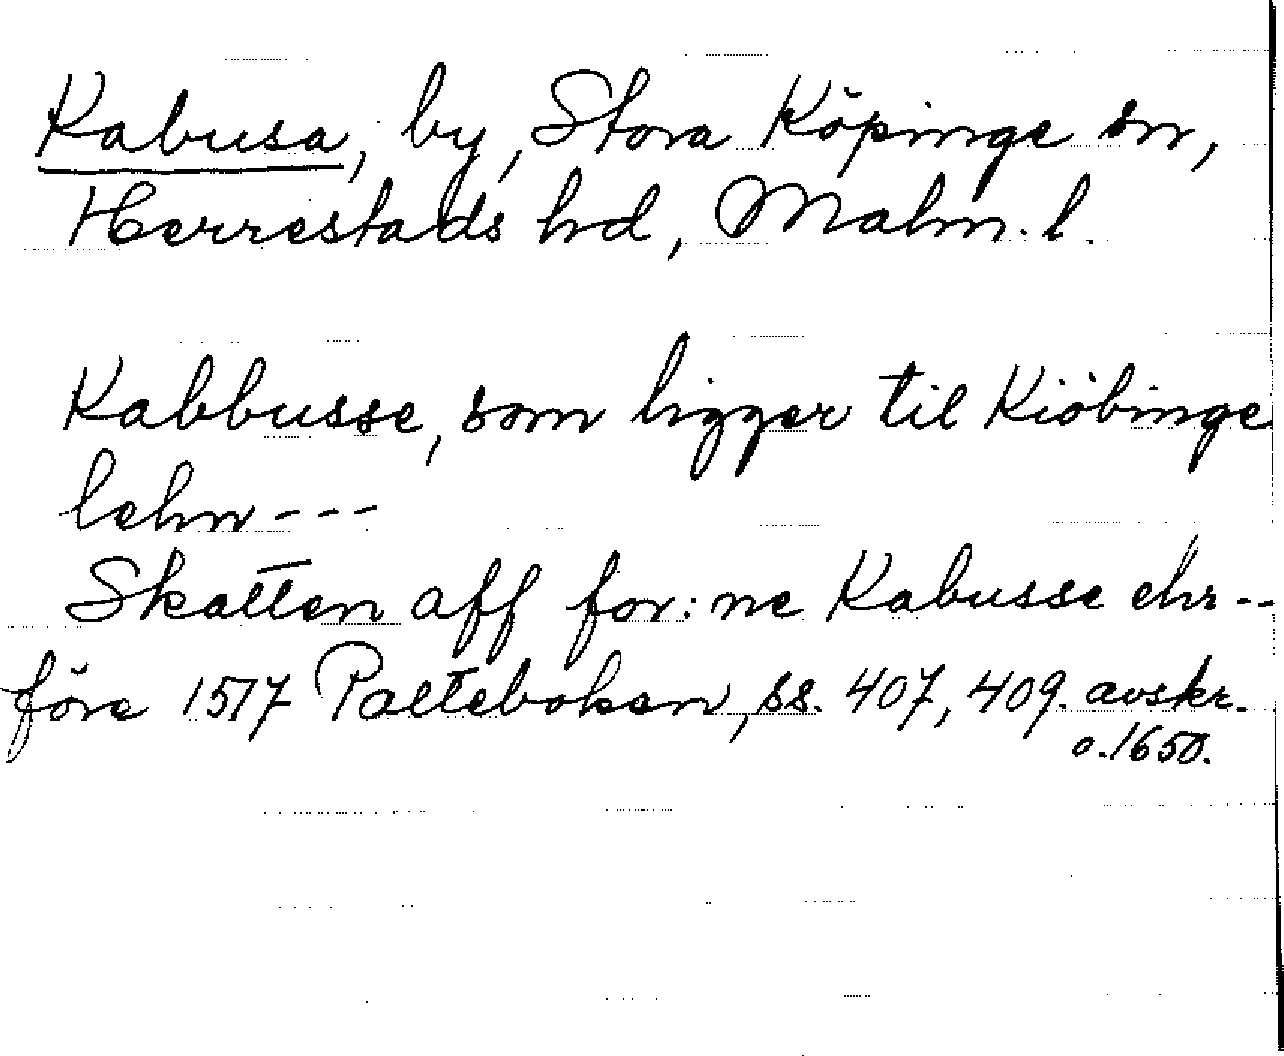 Kabusa, by, Stora Köpinge sn,
Herrestads hd, Malm. l.
Kabbusse, som ligger til Kiöbinge
lehn ---
Skatten aff for:ne Kabusse ehr --
före 1517 Palteboken, ss. 407, 409. avskr.
o. 1650.